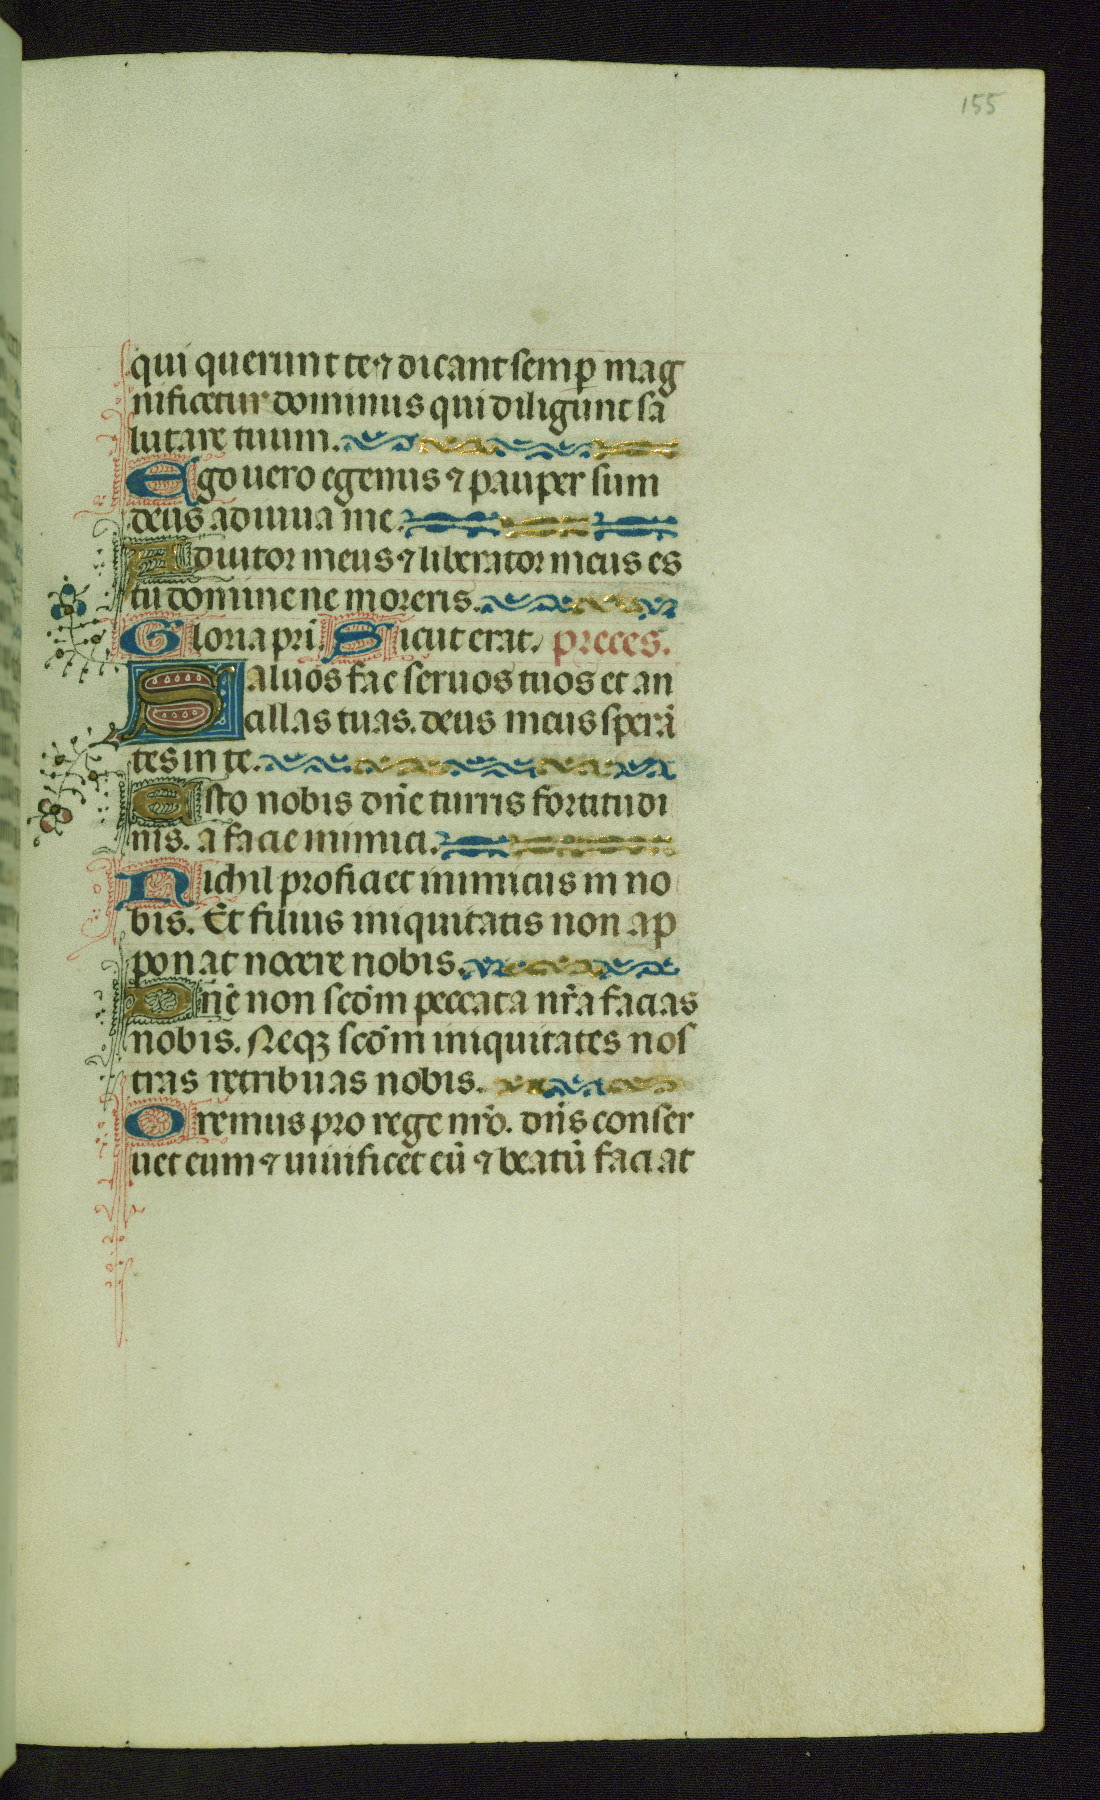 155
qui querunt te ⁊ dicant semp̲ mag
nificetur dominus qui diligunt sa
lutare tuum.
Ego uero egenus ⁊ pauper sum
deus adiuua me.
Adiutor meus ⁊ liberator meus es
tu domine ne moreris.
Gloria pr̄i. Sicut erat. preces.
Saluos fac seruos tuos et an
cillas tuas. deus meus sperā
tes in te.
Esto nobis dn̄e turris fortitudi
nis. a facie inimici.
Nichil proficiet inimicus in no
bis. Et filius iniquitatis non ap
ponat nocere nobis.
Dn̄e non scd̄m peccata nr̄a facias
nobis. Neqꝫ scd̄m iniquitates nos
tras retribuas nobis.
Oremus pro rege nr̄o. dn̄s conser
uet eum ⁊ uiuificet eū ⁊ beatū faciat